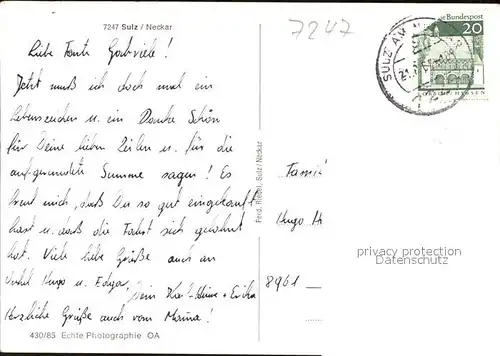 7247 Sulz / Neckar
7247
Deutsche Bundespost
20
SULZ AM
LORSCH/HESSEN
Liebe Tante Gabriele!
Jetzt muß ich doch mal ein
Lebenszeichen u. ein Danke Schön
für Deine lieben Zeilen u. für die
aufgerundete Summe sagen! Es
freut mich, daß Du so gut eingekauft
hast u. daß die Fahrt sich gelohnt
hat. Viele liebe Grüße auch an
Onkel Hugo u. Edgar, Dein Karl-Heinz + Erika
Herzliche Grüße auch vom Mama!
Ferd. Riedel, Sulz/Neckar
Famil
Hugo H
8961
privacy protection
Datenschutz
430/85 Echte Photographie OA